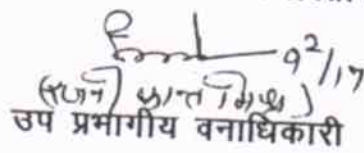 9 2/17
(रजनी कान्त मिश्रा)
उप प्रभागीय वनाधिकारी